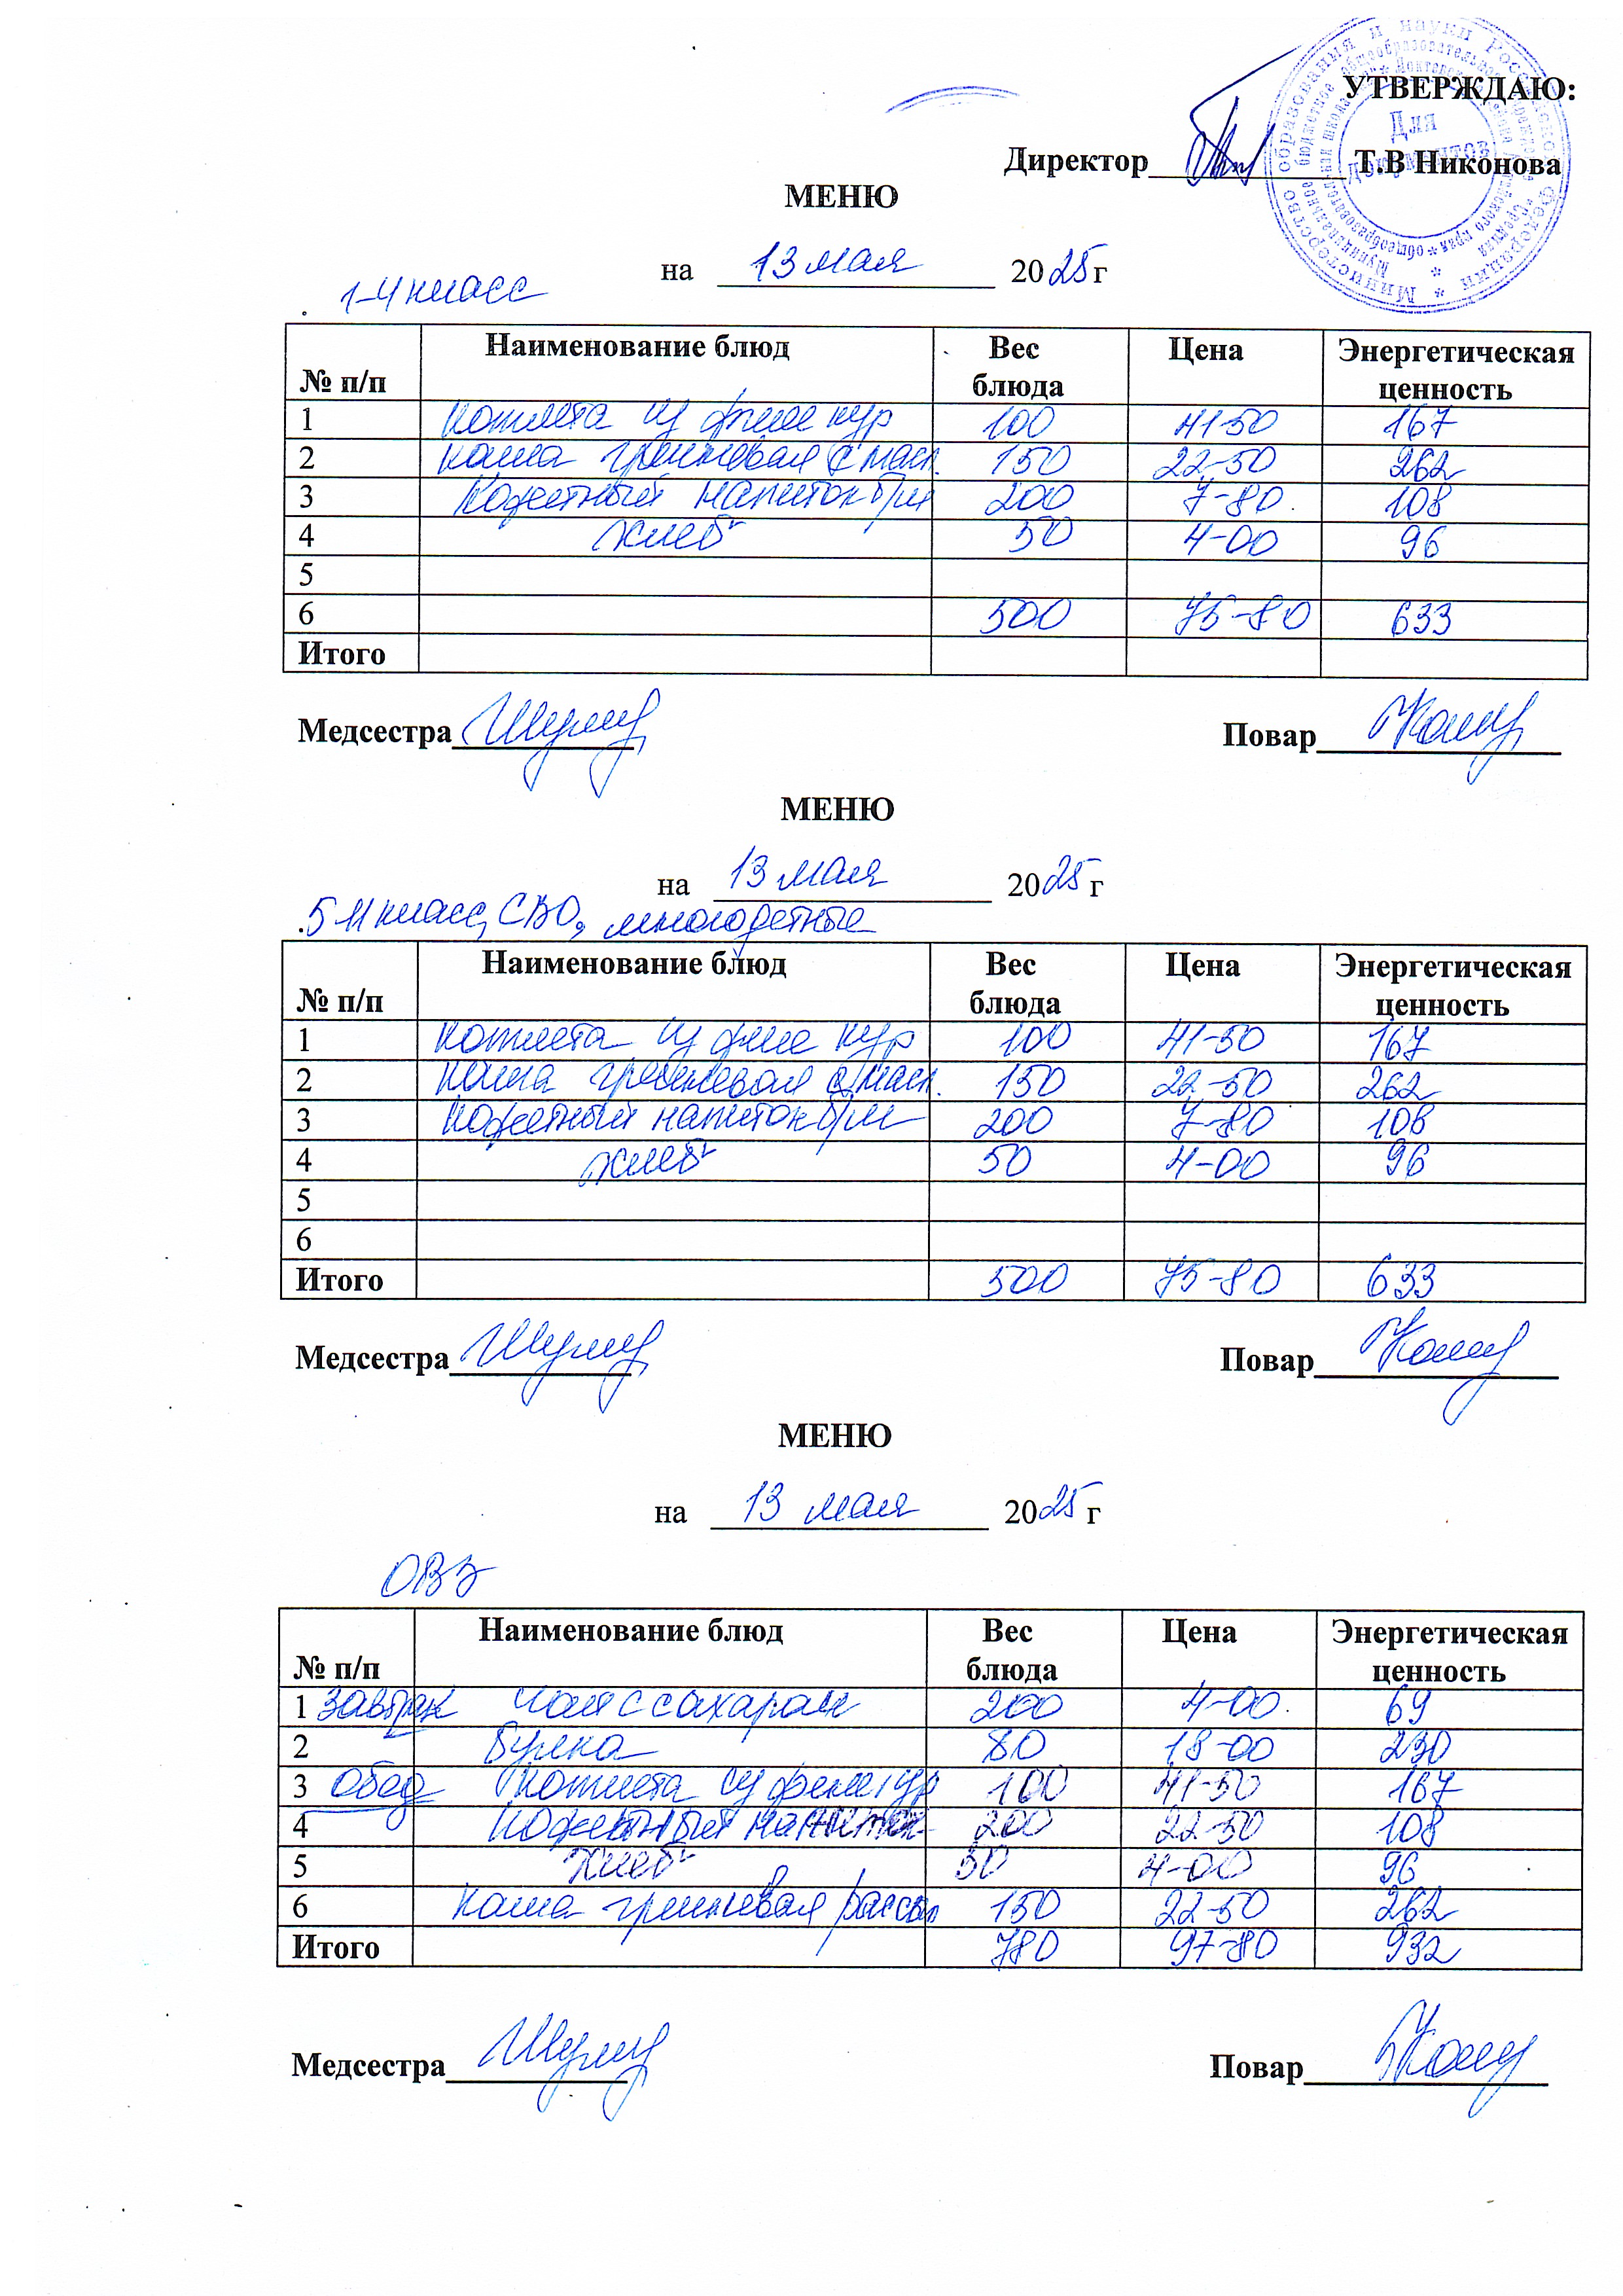 УТВЕРЖДАЮ:
Директор Т.В Никонова
Для документов
МЕНЮ
на 13 мая 2025 г
1-4 класс
№ п/п Наименование блюд Вес блюда Цена Энергетическая ценность
1 Котлета из филе кур 100 41-50 167
2 каша гречневая с масл. 150 22-50 262
3 Кофейный напиток б/м 200 7-80 108
4 хлеб 50 4-00 96
5
6 500 75-80 633
Итого
Медсестра Повар
МЕНЮ
на 13 мая 2025 г
5-11 класс, СВО, многодетные
№ п/п Наименование блюд Вес блюда Цена Энергетическая ценность
1 котлета из филе кур 100 41-50 167
2 каша гречневая с масл. 150 22-50 262
3 Кофейный напиток б/м 200 7-80 108
4 хлеб 50 4-00 96
5
6
Итого 500 75-80 633
Медсестра Повар
МЕНЮ
на 13 мая 2025 г
ОВЗ
№ п/п Наименование блюд Вес блюда Цена Энергетическая ценность
1 завтрак чай с сахаром 200 4-00 69
2 булка 80 18-00 230
3 обед котлета из филе кур 100 41-50 167
4 кофейный напиток 200 22-50 108
5 хлеб 50 4-00 96
6 каша гречневая рассып 150 22-50 262
Итого 780 97-80 932
Медсестра Повар